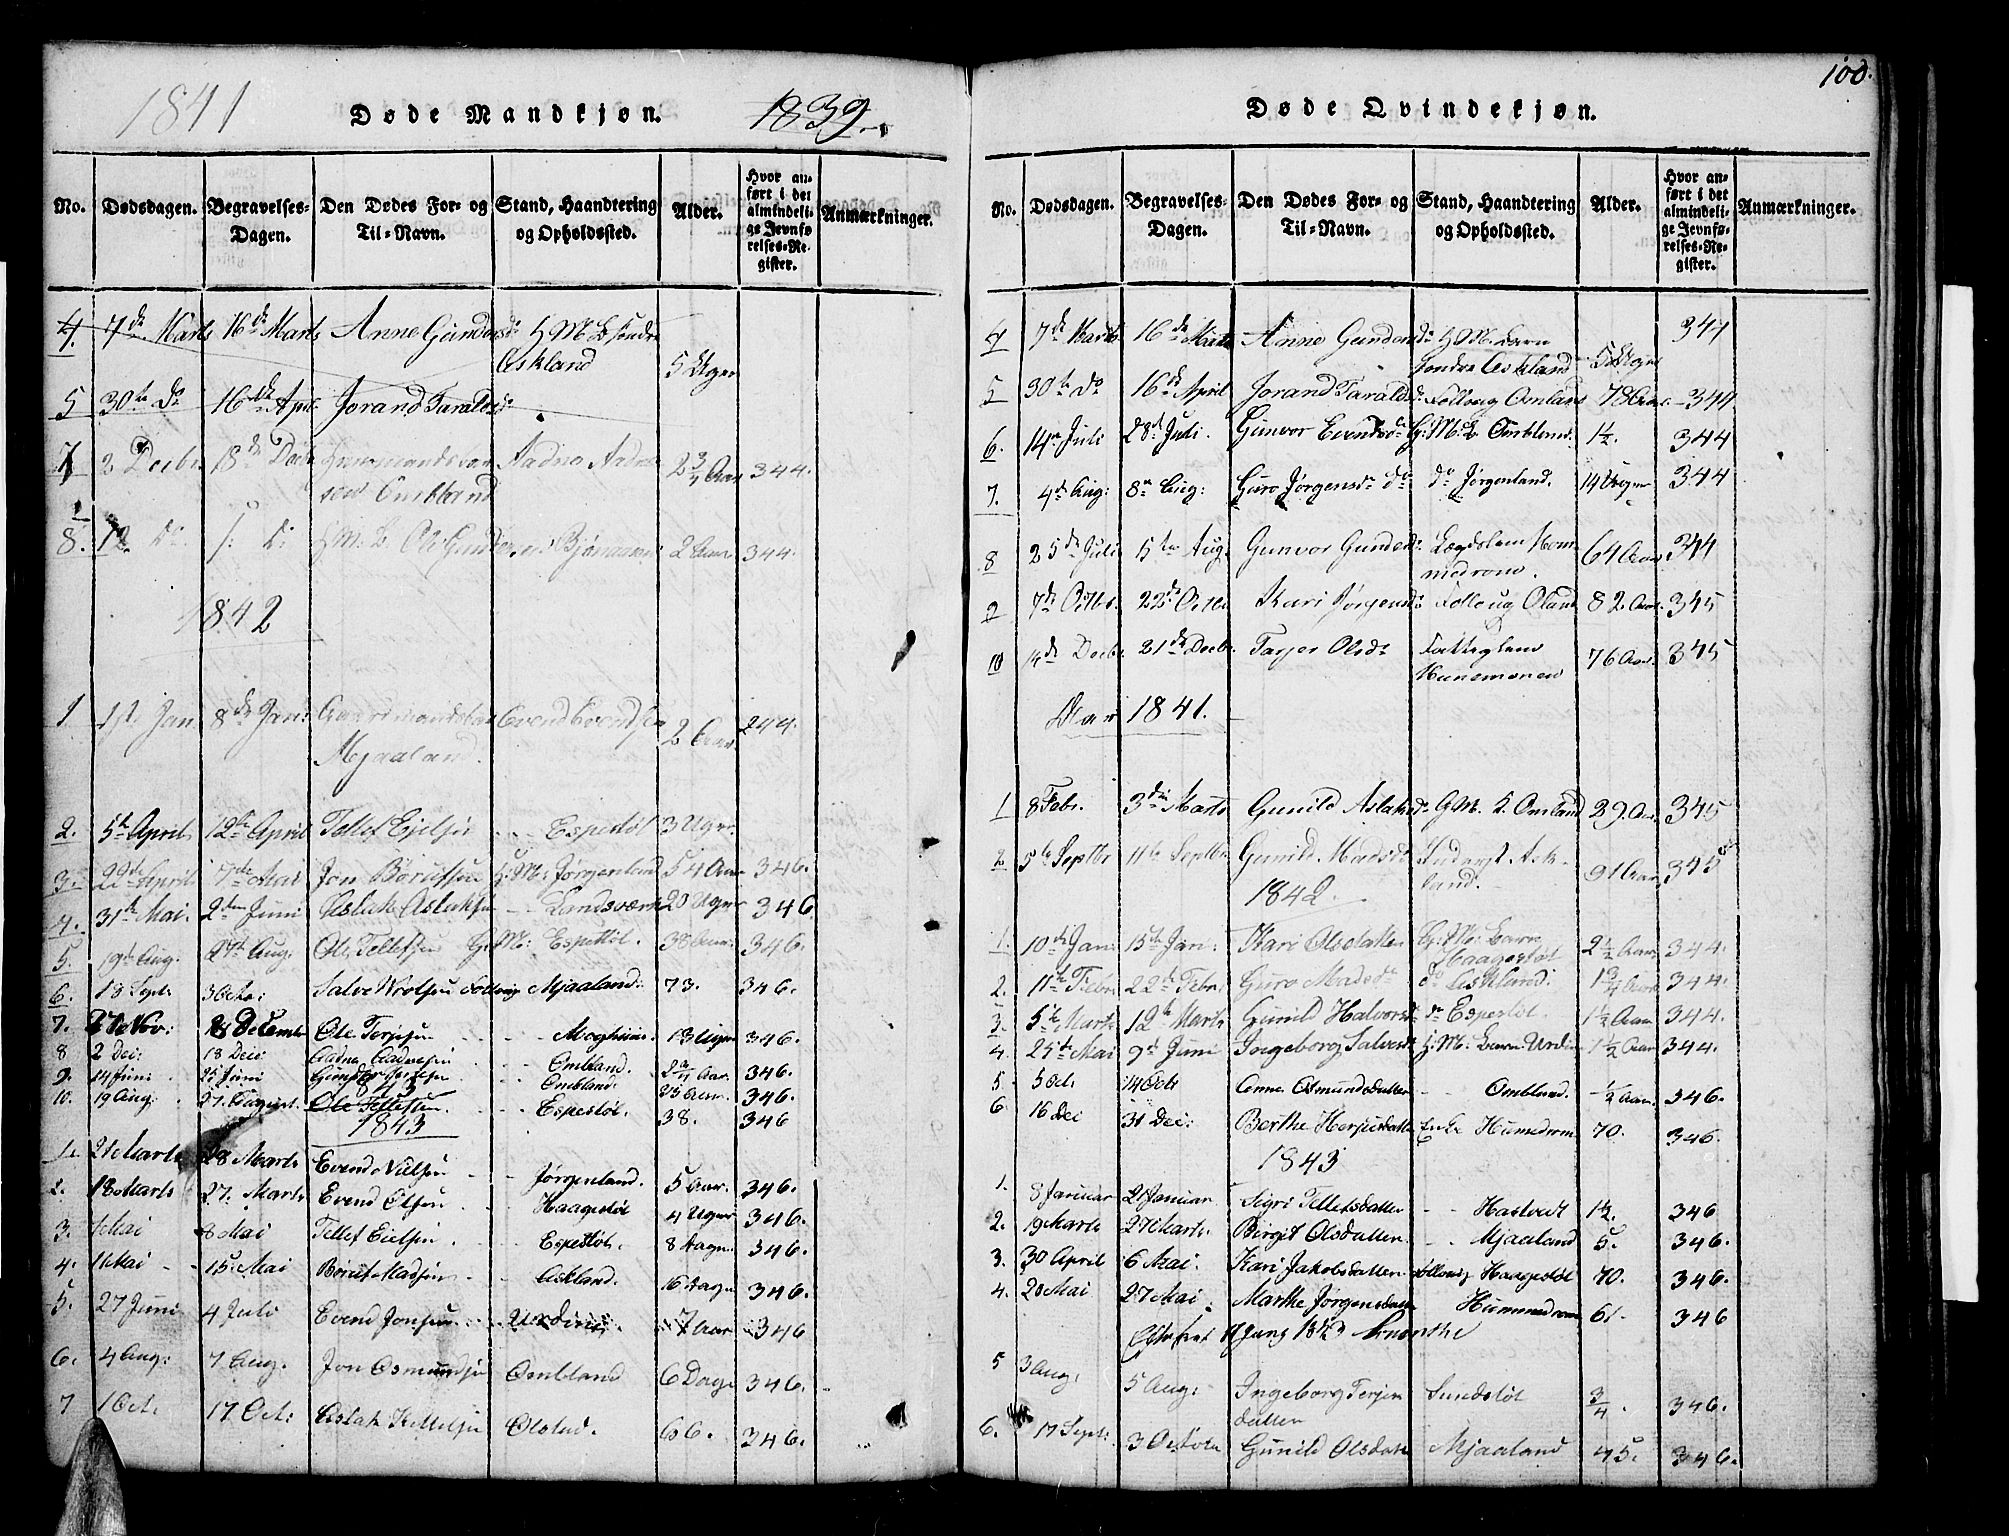 100.
1841
Døde Mandkjøn.
1839.
No.
Dødsdagen.
Begravelses-
Dagen.
Den Dødes For- og
Til-Navn.
Stand, Haandtering
og Opholdssted.
Alder.
Hvor an-
ført i det
almindeli-
ge Jevnfø-
relses-Re-
gister.
Anmærkninger.
4. 7de Marts 16de Marts Anne Gundersdr G M B søndre
Askland 5 Uger
5 30te Do 16de April Jorand Taraldsdr
2 Decbr 18de Decbr Aadne Aadne
sen Ombland 2 3/4 Aar 344.
8. 12 Do Do G M B Ole Gundersen Bjønaasen 2 Aar 344.
1842
1 1st Jan 8de Jan: Gaardmandsbarn Evend Evendsen
Mjaaland. 2 Aar
2. 5te April 12te April Tellef Ejelsen Espestøl 3 Uger.
3. 22de April 7de Mai Jon Børuldsen G: M: Jørgenland 54 Aar 346.
4. 31te Mai. 2den Juni Aslak Aslaksen Landsværk 20 Uger 346
5. 19de Aug. 27de Aug. Ole Tellefsen G: M: Espestøl. 38 Aar. 346.
6. 18 Sept: 3 Octo: Salve Wrolsen Follaug Mjaaland: 73. 346.
7. 27 Nov: Decembr Ole Terjesen 13 Uger 346.
8 2 Dec: 18 Dec: Aadne Aadnesen Ombland. 2 3/4 Aar. 346.
9. 14 Juni 25 Juni Gunder Ombland. 346.
10. 19 Aug: 27. August. Ole Tellefsen. Espestøl. 38. 346
1843
1. 21 Marts 28 Marts Evend Nielsen Jørgenland. 5 Aar. 346.
2. 18 Marts 27. Marts Evend Olsen Haagestøl 4 Uger 346.
3. 1 Mai 8 Mai Tellef Eielsen Espestøl. 8 Dage. 346.
4. 11 Mai 15. Mai Børut Madsen Askland. 16 Dage 346.
5. 27 Juni 4 Juli Evend Jonsen Urdinis. 7 Aar 346
6. 4 Aug: 7 Aug. Jon Osmundsen Ombland 6 Dage 346.
7 1 Oct. 17 Oct: Aslak Kittelsen Olstad. 66. 346.
Døde Qvindekjøn.
No.
Dødsdagen.
Begravelses-
Dagen.
Den Dødes For- og
Til-Navn.
Stand, Haandtering
og Opholdssted.
Alder.
Hvor an-
ført i det
almindeli-
ge Jevnfø-
relses-Re-
gister.
Anmærkninger.
4 7de Marts 16de Marts Anne Gundersdr G. M. Barn
søndre Askland 5 Uger 344
5 30te Do 16de April Jorand Taraldsdr Follaug Omland 78 Aar 344
6. 14de Juli 28de Juli. Gunvor Evendsdr G: M: B Ombland. 1½. 344
7. 4de Aug: 8de Aug: Guro Jørgensdr do Jørgenland. 14 Uger 344
8 25de Juli 5te Aug. Gunvor Gundersdr Lægdslem Hom-
medrom. 64 Aar 344
9 7de Octbr. 22de Octbr Kari Jørgensdr Follaug Oland 82 Aar. 345
10 Decbr. 21de Decbr. Tarjer Olsdr Fattiglem
76 Aar. 345
Aar 1841.
1 8 Febr. 3die Marts Gunild Aslaksdr G. M. K. Omland 29 Aar. 345
2. 5te Septbr 11te Septbr Gunild Madsdr Inderst Ask-
land. 91 Aar 345
1842.
1. 10de Jan: 15de Jan: Kari Olsdatter G: M: Barn
Haagestøl 2½ Aar 344.
2. 11te Febr 22de Febr: Guro Madsdr do Askland: 1 3/4 Aar 344.
3. 5te Marts 12te Marts Gunild Halvorsdr do Espestøl. 1½ Aar 344.
4. 25de Mai 9de Juni Ingeborg Salvesdr G: M: Barn Urdin ½ Aar 344.
5. 5 Oct. 14 Octr Anne Osmundsdatter Ombland. ½ Aar. 346.
6. 16 Dec 31 Dec: Berthe Herjusdatter Enke Humedrom 70. 346.
1843
1. 8 Januar 21 Januar Sigri Tellefsdatter Hastvedt 1½. 346
2. 19 Marts 27 Marts. Birgit Olsdatter. Mjaaland 5. 346.
3. 30 April 6 Mai. Kari Jakobsdatter Follaug Haagestøl 70. 346.
4. 20 Mai 27 Mai Marthe Jørgensdatter Hummedrom 61. 346
Efterseet 17 Juny 1843
5 3 Aug. 5 Aug: Ingeborg Terjes
datter Sundsløl 3/4. 346.
6. 17 Sept: 3 October Gunild Olsdatter Mjaaland 45. 346.